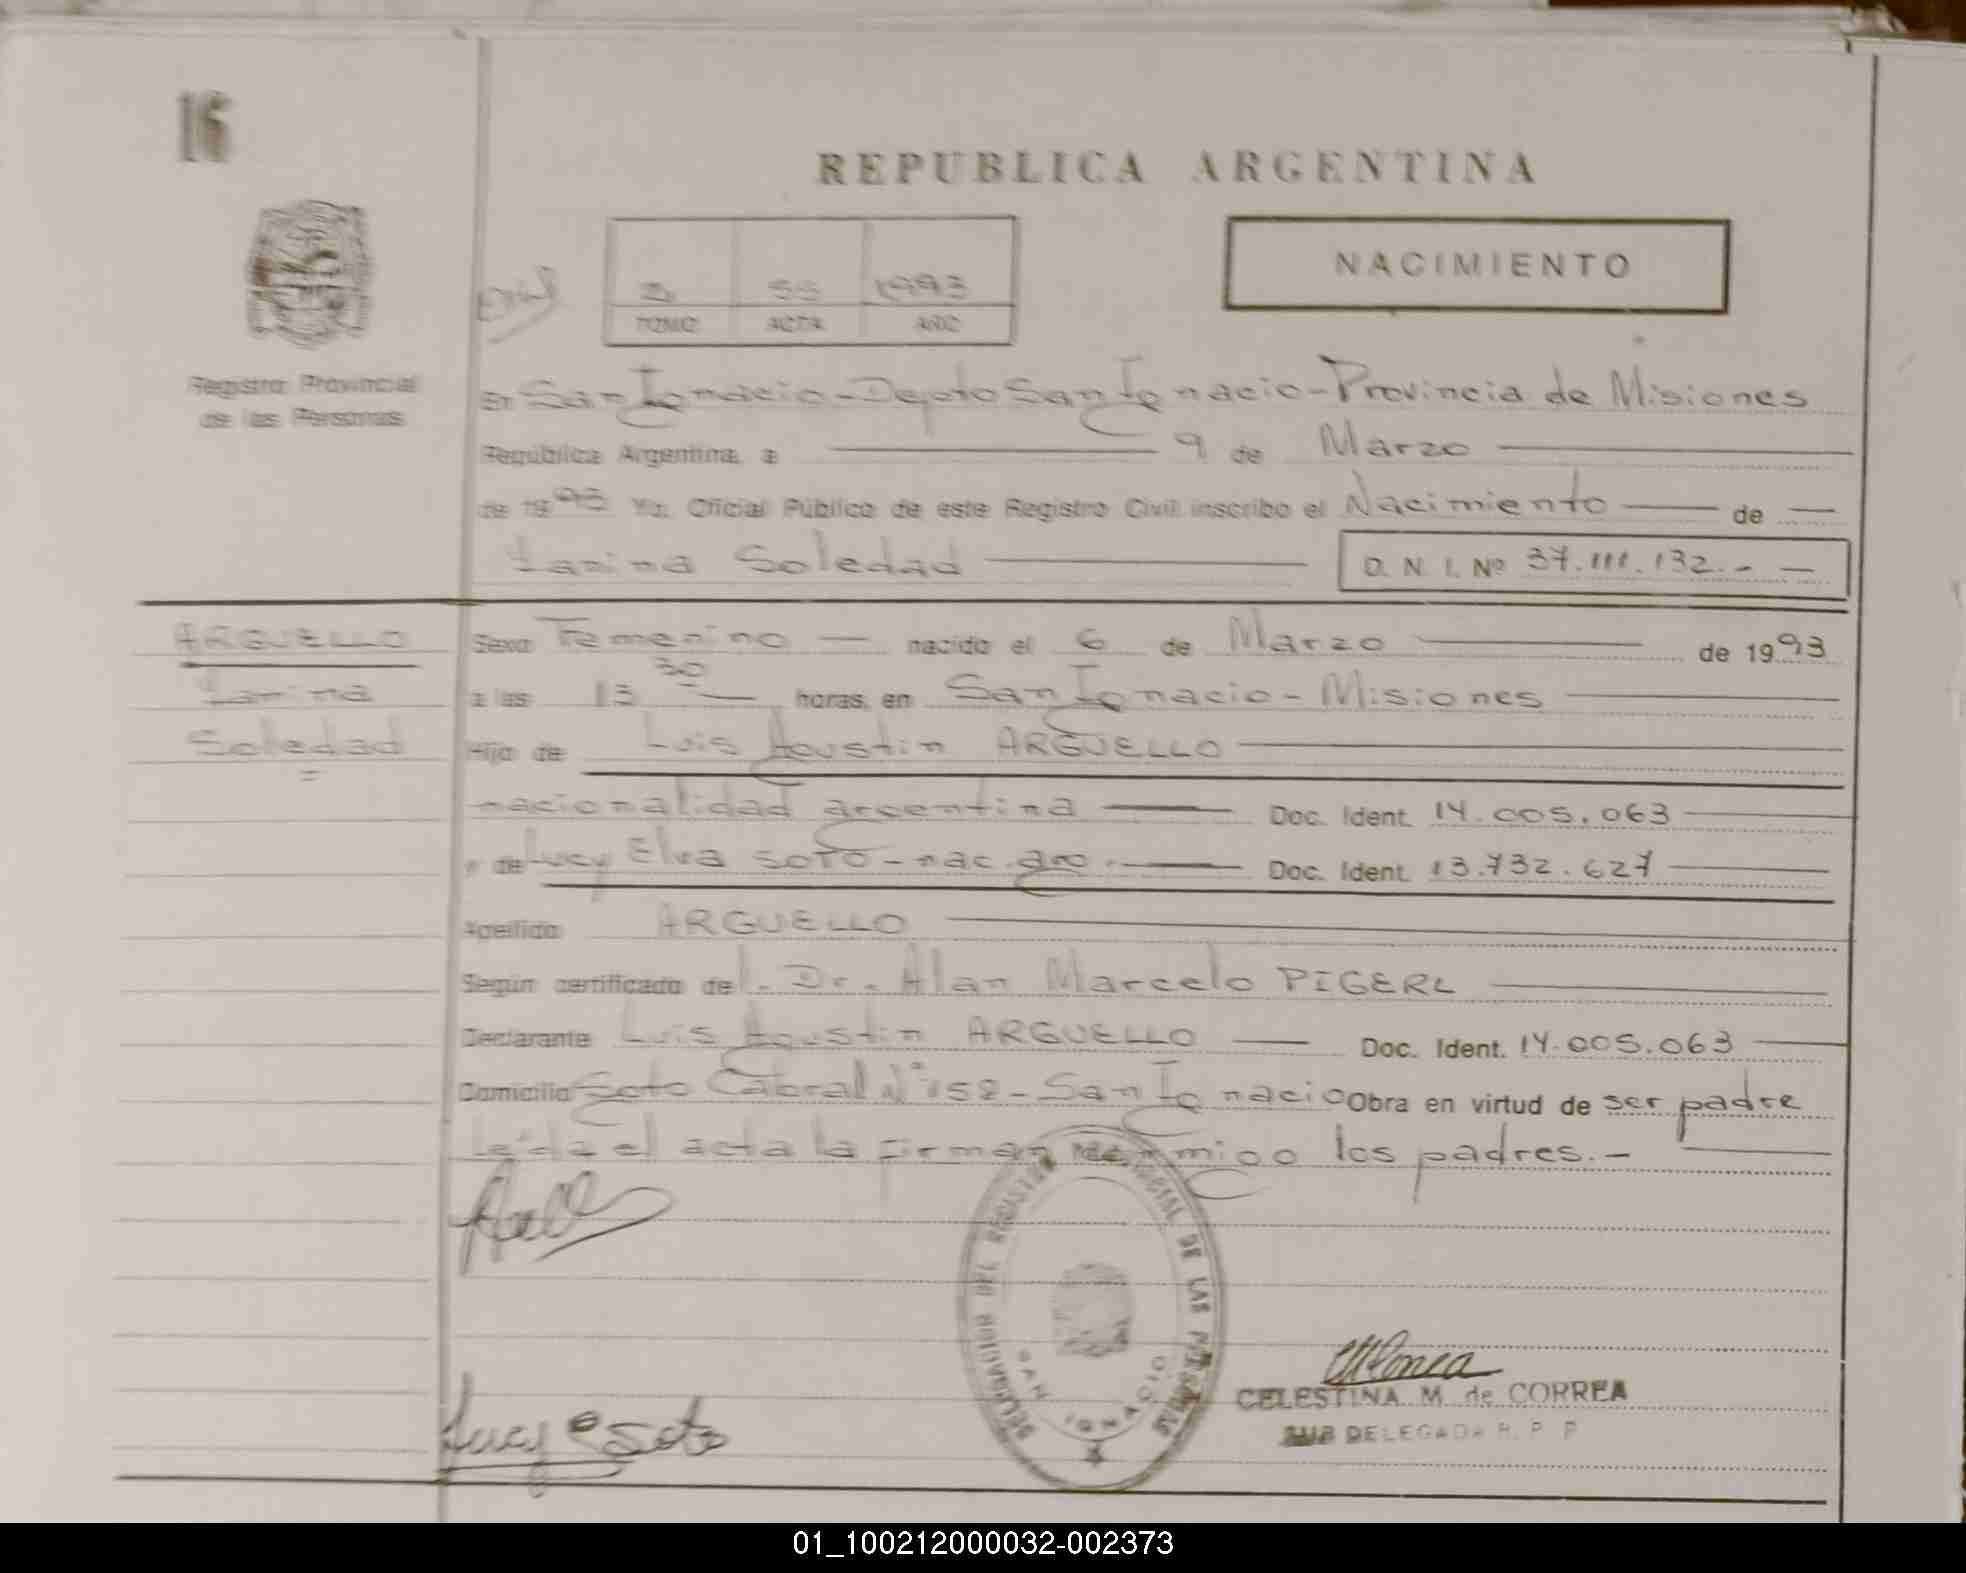 16
REPUBLICA ARGENTINA
NACIMIENTO
1993
TOMO ACTA AÑO
Registro Provincial
de las Personas
En San Ignacio - Depto San Ignacio - Provincia de Misiones
República Argentina, a 9 de Marzo
de 1993 Yo, Oficial Público de este Registro Civil inscribo el Nacimiento de
Yanina Soledad D. N. I. Nº 37.111.132.-
ARGUELLO
Yanina
Soledad
Sexo Femenino nacido el 6 de Marzo de 1993
a las 13 30 horas, en San Ignacio - Misiones
Hijo de Luis Agustin ARGUELLO
nacionalidad argentina Doc. Ident. 14.005.063
y de Lucy Elva SOTO - nac. arg. Doc. Ident. 13.732.627
Apellido ARGUELLO
Según certificado del. Dr. Alan Marcelo PIGERL
Declarante Luis Agustin ARGUELLO Doc. Ident. 14.005.063
Domicilio Soto Cabral Nº 158 - San Ignacio Obra en virtud de ser padre
Leída el acta la firman conmigo los padres.-
DELEGACION DEL REGISTRO PROVINCIAL DE LAS PERSONAS
SAN IGNACIO
Lucy E Soto
CELESTINA M. de CORREA
SUB DELEGADA R. P. P
01_100212000032-002373